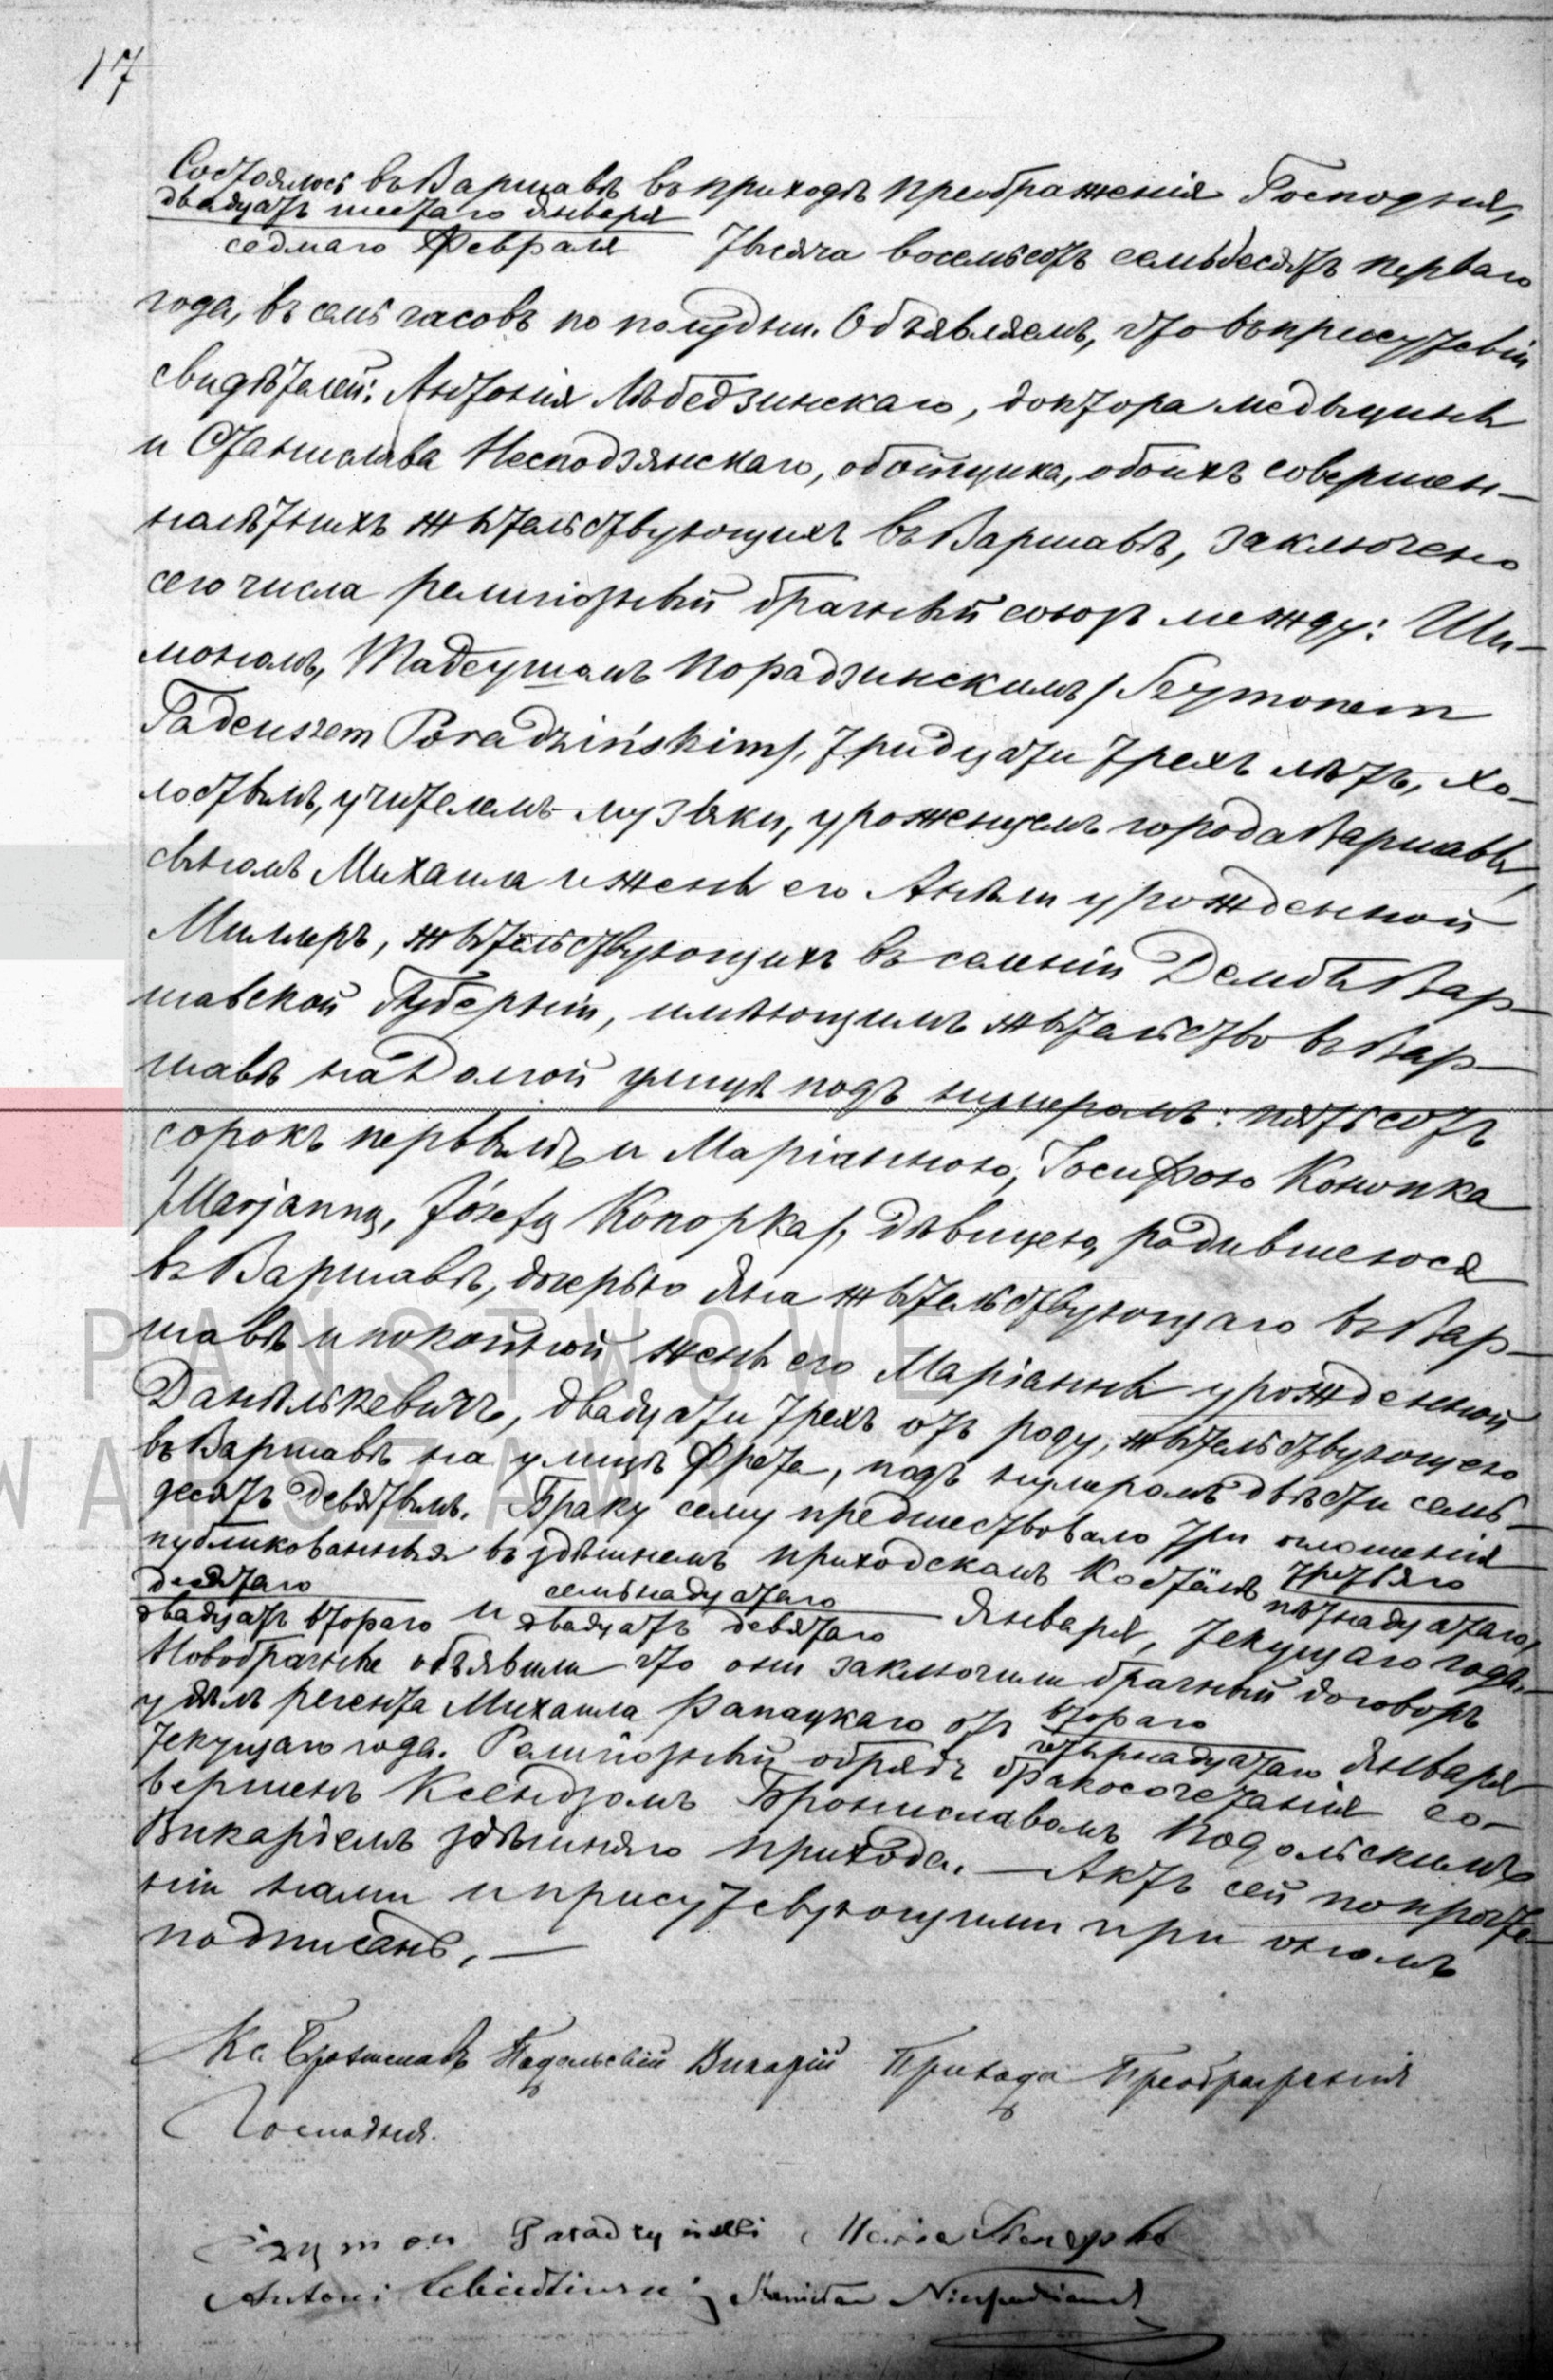 17
Состоялось въ Варшавѣ въ приходѣ Преображенія Господня,
двадцать шестаго Января
седмаго Февраля тысяча восемьсотъ семьдесятъ перваго
года, въ семь часовъ по полудни. Объявляемъ, что въ присутствіи
свидѣтелей: Антонія Лѣбедзинскаго, доктора медыцины
и Станислава Несподзянскаго, обойщика, обоихъ совершен-
нолѣтнихъ жытельствующихъ въ Варшавѣ, заключено
сего числа религіозный брачный союзъ между: Ши-
мономъ, Тадеушомъ Порадзинскимъ /Szymonem
Tadeuszem Poradzińskim/, тридцати трехъ лѣтъ, хо-
лостымъ, учителемъ музыки, уроженцемъ города Варшавы,
сыномъ Михаила и жены его Анѣли урожденной
Миллеръ, жытельствующихъ въ селеніи Дембы Вар-
шавской Губерніи, имѣющимъ жытельство въ Вар-
шавѣ на Долгой улицѣ подъ нумеромъ: пятьсотъ
сорокъ первымъ и Маріанною, Іосифою Конопка
/Marjanną, Józefą Konopka/, дѣвицею, родившеюся
въ Варшавѣ, дочерью Яна жытельствующаго въ Вар-
шавѣ и покойной жены его Маріанны урожденной
Данѣлькевичъ, двадцати трехъ отъ роду, жытельствующею
въ Варшавѣ на улицѣ Фрета, подъ нумеромъ двѣсти семь-
десятъ девятымъ. Браку сему предшествовало три оглошенія
публикованныя въ здѣшнемъ приходскомъ Костёлѣ третьяго
пятнадцатаго,
десятаго семьнадцатаго
двадцать втораго и двадцать девятаго Января, текущаго года.
Новобрачные объявили что они заключили брачный договоръ
у дѣлъ регента Михаила Рапацкаго отъ втораго
четырнадцатаго Января
текущаго года. Религіозный обрядъ бракосочетанія со-
вершенъ Ксендзомъ Брониславомъ Подольскимъ
Викаріемъ здѣшняго прихода. — Актъ сей по прочте-
ніи нами и присутствующими при ономъ
подписанъ. —
Кс. Брониславъ Подольскій Викарій Прихода Преображенія
Господня.
Szymon Poradzyński Maria Konopka
Antoni Lebiedziński Stanisław Niespodziański